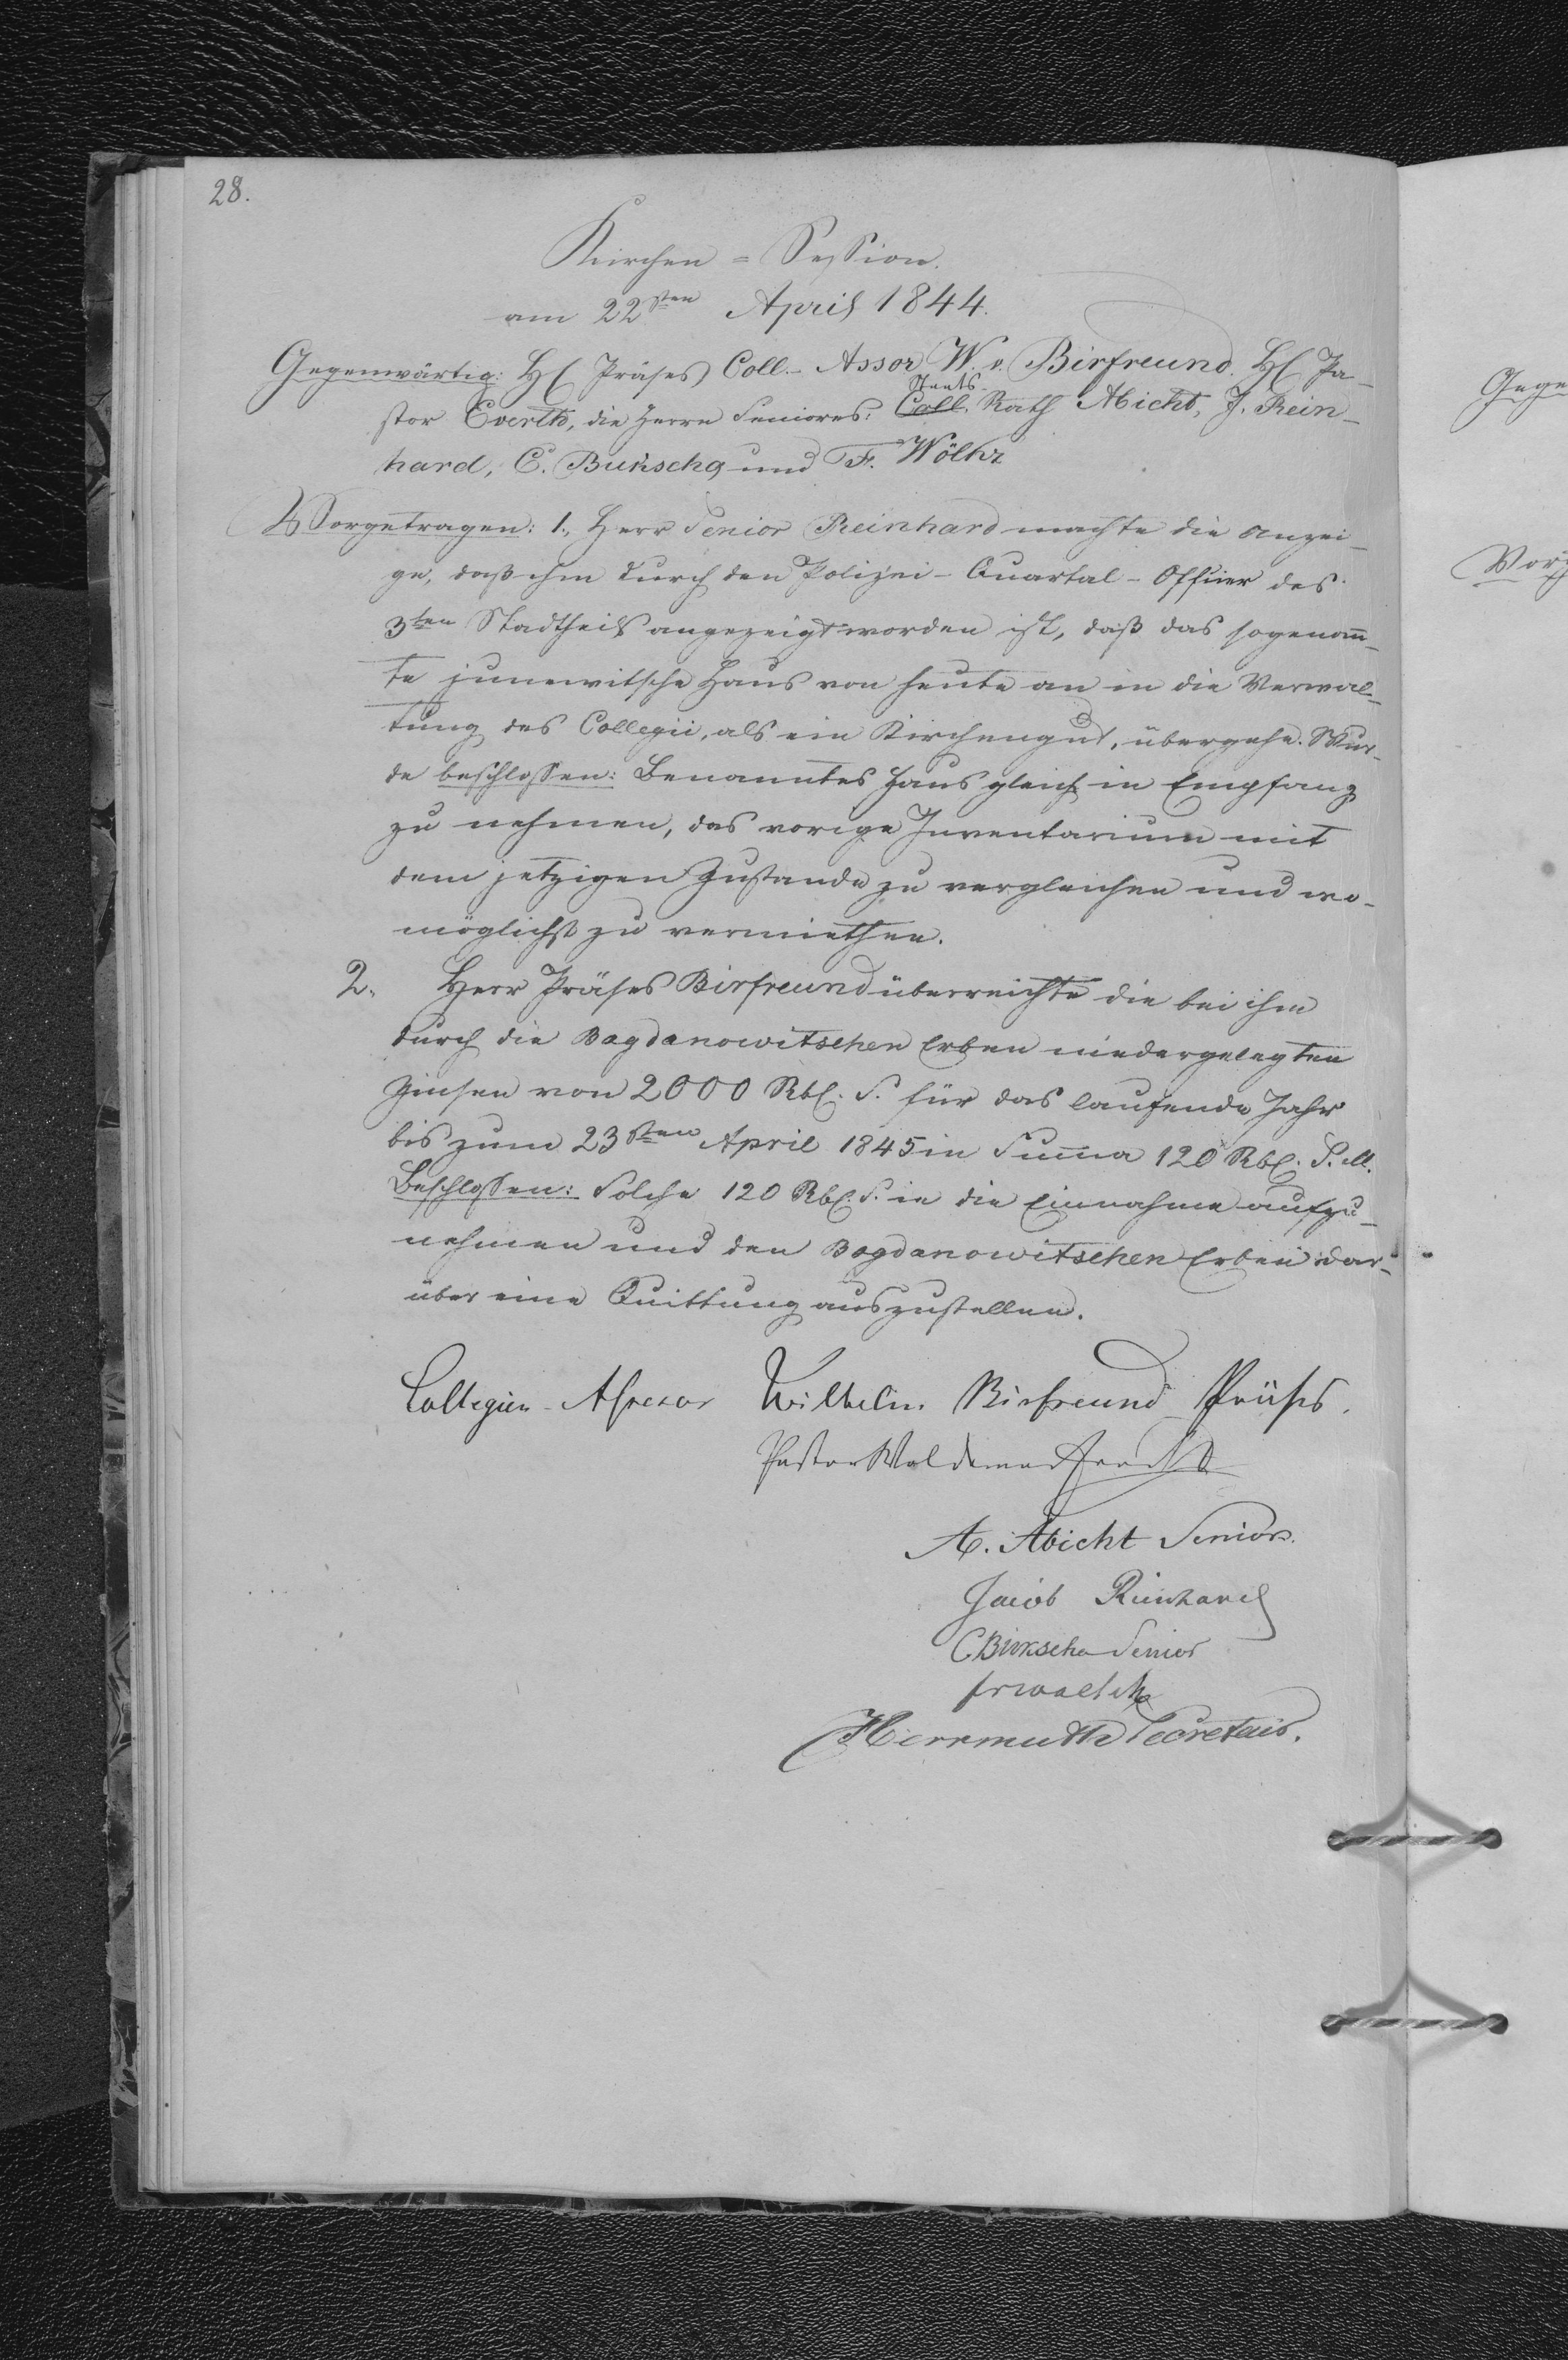 28.
Kirchen = Session.
am 22sten April 1844.
Gegenwärtig: H Präses Coll.- Assor W. v. Birfreund. H Pa-
stor Everth, die Herrn Seniores: Coll. Staats- Rath Abicht, J. Rein-
hard, E. Bukscha und F. Wölk
Vorgetragen: 1., Herr Senior Reinhard machte die Anzei-
ge, daß ihm durch den Polizei - Quartal - Officier des
3ten Stadtheils angezeigt worden ist, daß das sogenan̄-
te junewitsche Haus von heute an in die Verwal-
tung des Collegii, als ein Kirchengut, übergehe. Wur-
de beschlossen: Benanntes Haus gleich in Empfang
zu nehmen, das vorige Inventarium mit
dem jetzigen Zustande zu vergleichen und wo-
möglichst zu vermiethen.
2. Herr Präses Birfreund überreichte die bei ihm
durch die Bogdanowitschen Erben niedergelegten
Zinsen von 2000 Rbl. S. für das laufende Jahr
bis zum 23sten April 1845 in Sum̄a 120 Rbl. S. M.
Beschlossen: Solche 120 Rbl. S. in die Einnahme aufzu-
nehmen und den Bogdanowitschen Erben dar-
über eine Quittung auszustellen.
Collegien - Assessor Wilhelm Birfreund Präses.
Pastor Woldemar
A. Abicht Senior.
Jacob Reinhard
C Bukscha Senior
Herrmuth Secretair.
Gege
Vorg